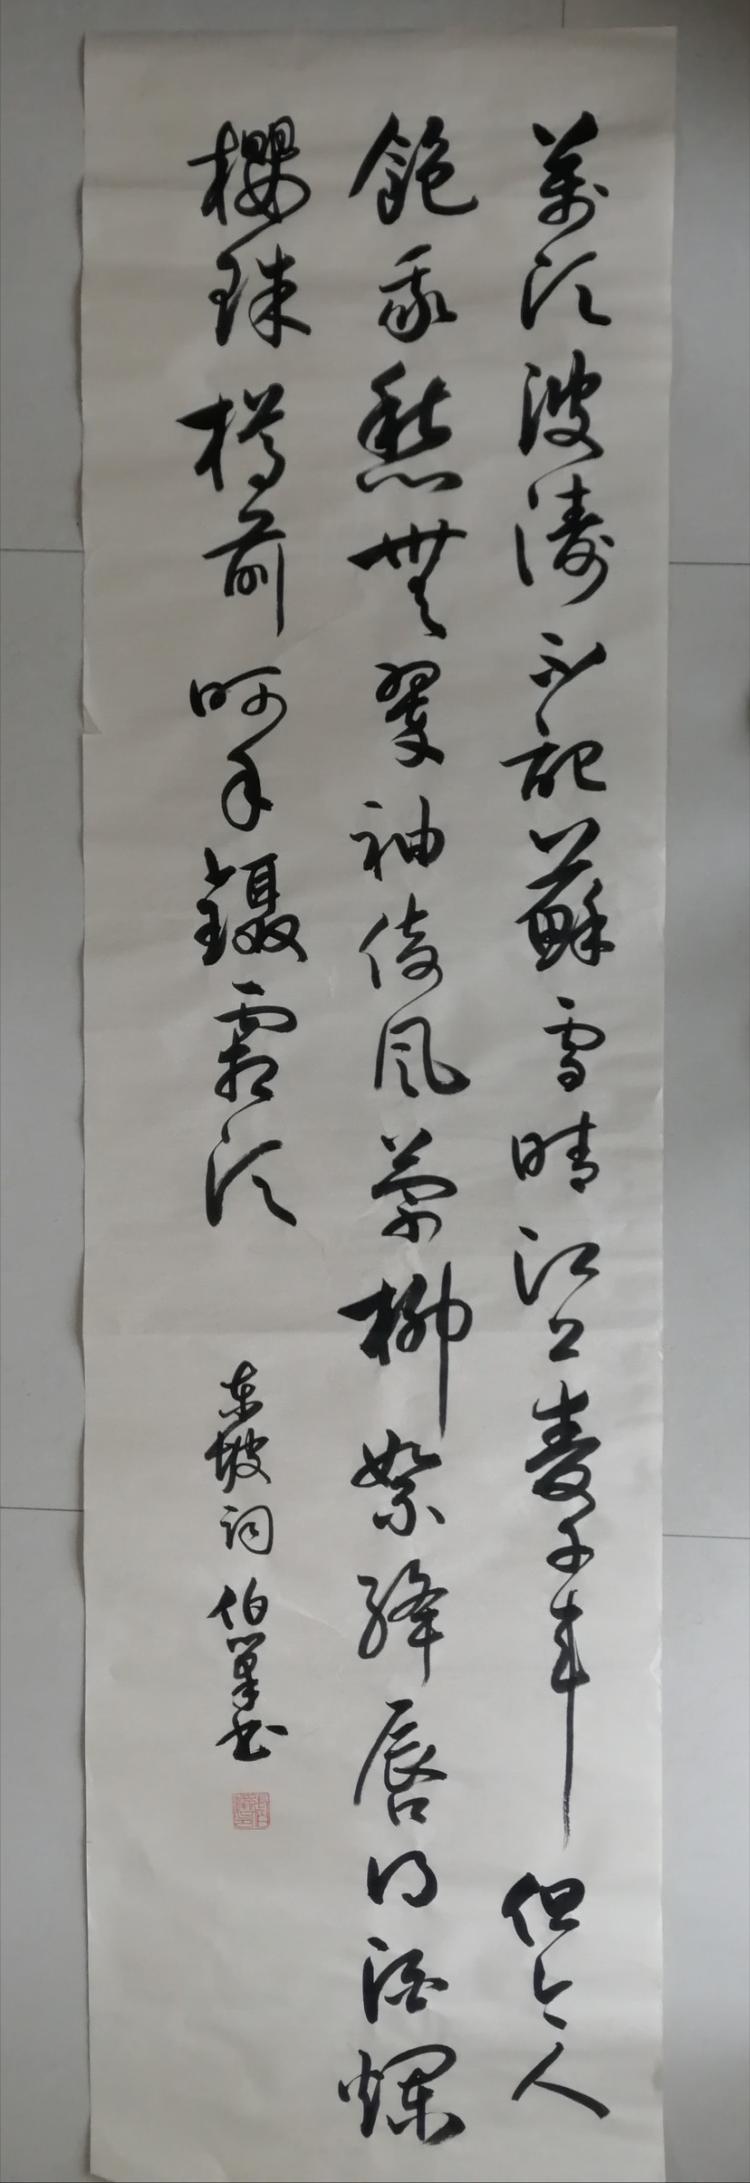 萬頃波濤不記蘇雪晴江上麥千車但令人
飽我愁無翠袖倚風縈柳絮絳唇得酒爛
櫻珠樽前呵手鑷霜須
東坡詞 伯 書